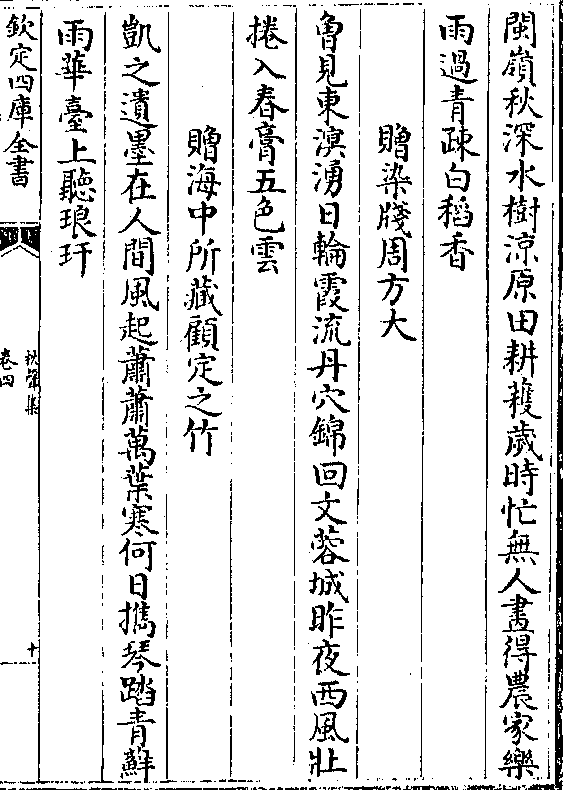 閩嶺秋深水樹涼原田耕穫歲時忙無人畫得農家樂
雨過青疎白稻香
贈染牋周方大
魯見東溟湧日輪霞流丹穴錦回文蓉城昨夜西風壯
捲入春膏五色雲
贈海中所藏顧定之竹
凱之遺墨在人間風起蕭蕭萬葉寒何日攜琴踏青蘚
雨華臺上聽琅玕
欽定四庫全書
秋聲集
卷四
十